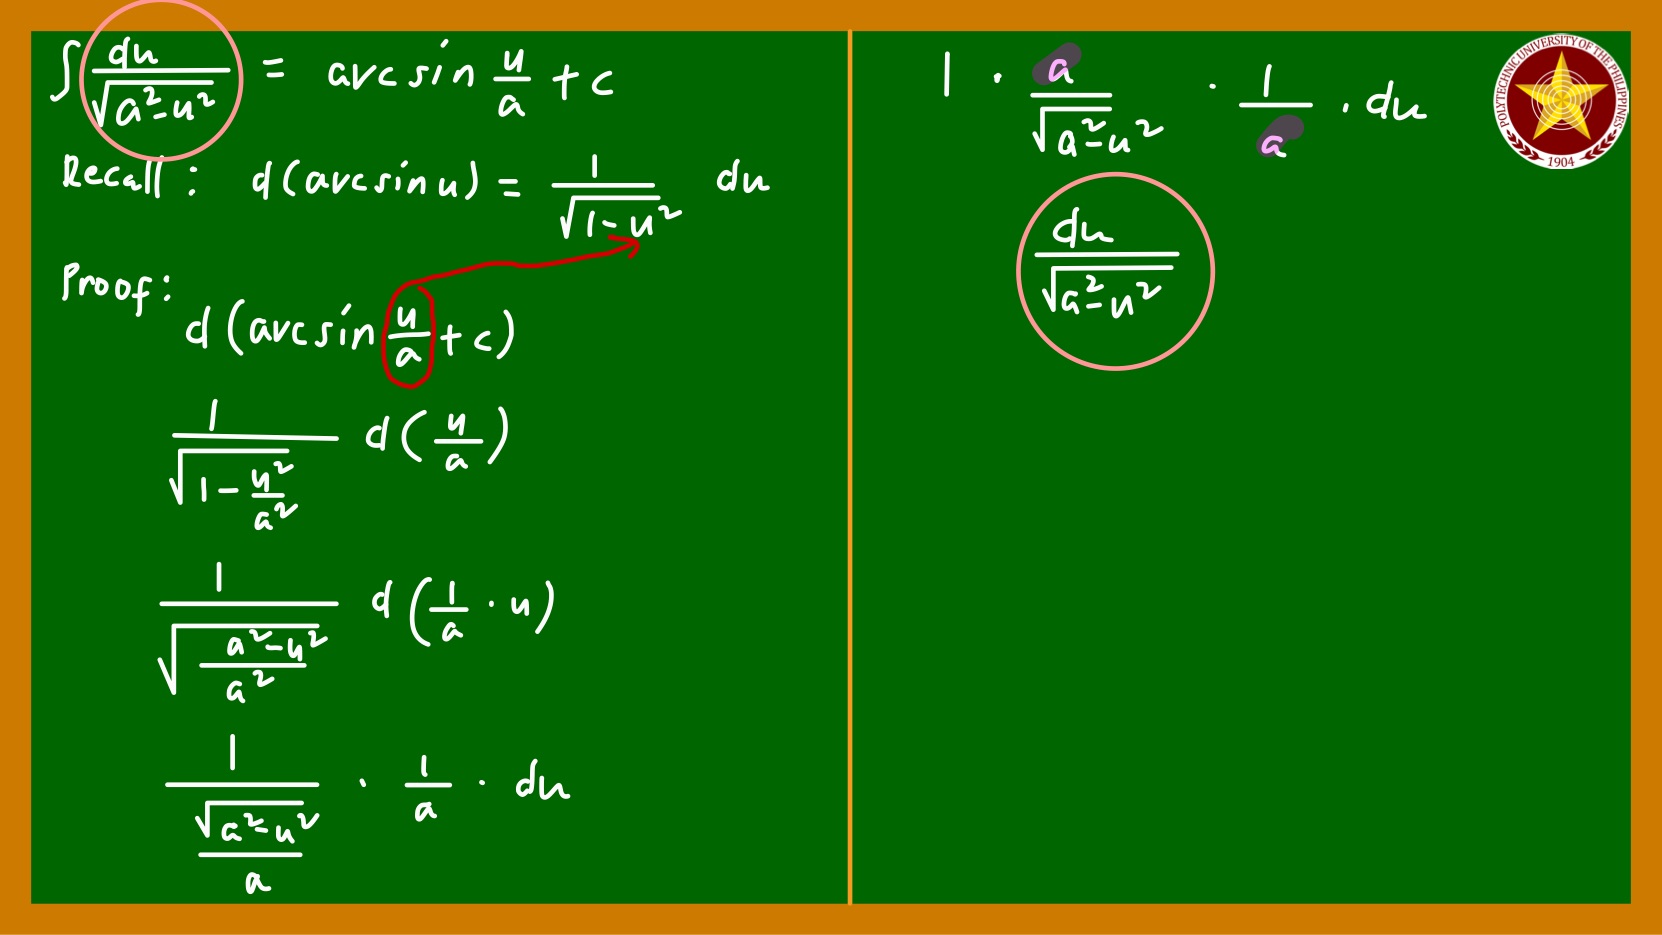 ∫ du/√(a²-u²) = arc sin u/a + c
Recall: d(arc sin u) = 1/√(1-u²) du
Proof:
d(arc sin u/a + c)
1/√(1-u²/a²) d(u/a)
1/√((a²-u²)/a²) d(1/a · u)
1/(√(a²-u²)/a) · 1/a · du
1 · a/√(a²-u²) · 1/a · du
du/√(a²-u²)
POLYTECHNIC UNIVERSITY OF THE PHILIPPINES
1904